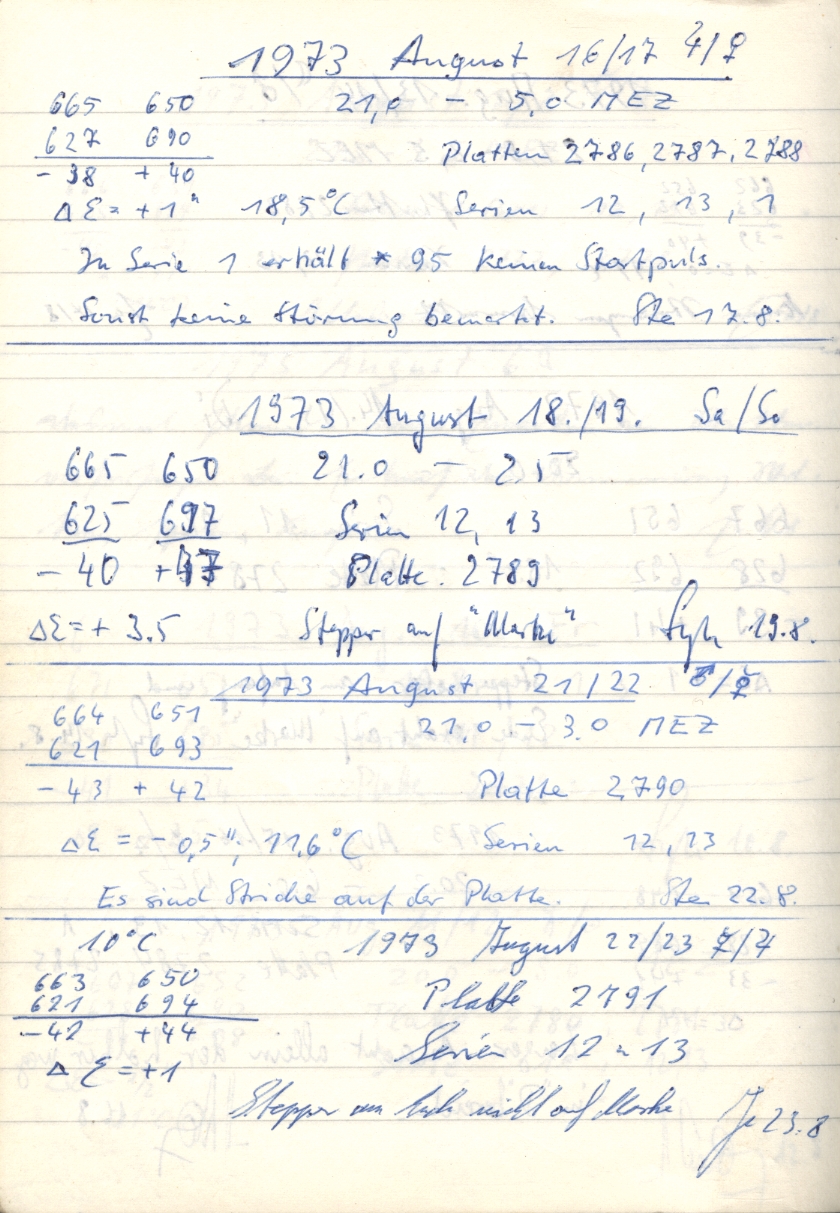 1973 August 16/17 ♃/♀
665 650 21,0 – 5,0 MEZ
627 690 Platten 2786, 2787, 2788
- 38 + 40
Δξ = + 1" 18,5°C Serien 12, 13, 1
In Serie 1 erhält * 95 keinen Startpuls.
Sonst keine Störung bemerkt. Ste 17.8.
1973 August 18./19. Sa/So
665 650 21.0 – 2.5
625 697 Serien 12, 13
- 40 + 47 Platte: 2789
Δξ = + 3.5 Stepper auf "Marke" 19.8.
1973 August 21/22 ♂/☿
664 651 21.0 – 3.0 MEZ
621 693
- 43 + 42 Platte 2790
Δξ = - 0,5", 11,6°C Serien 12, 13
Es sind Striche auf der Platte. Ste 22.8.
10°C 1973 August 22/23 ☿/♃
663 650 Platte 2791
621 694
-42 +44 Serien 12 u 13
Δ ξ = +1
Stepper am nicht auf Marke 23.8